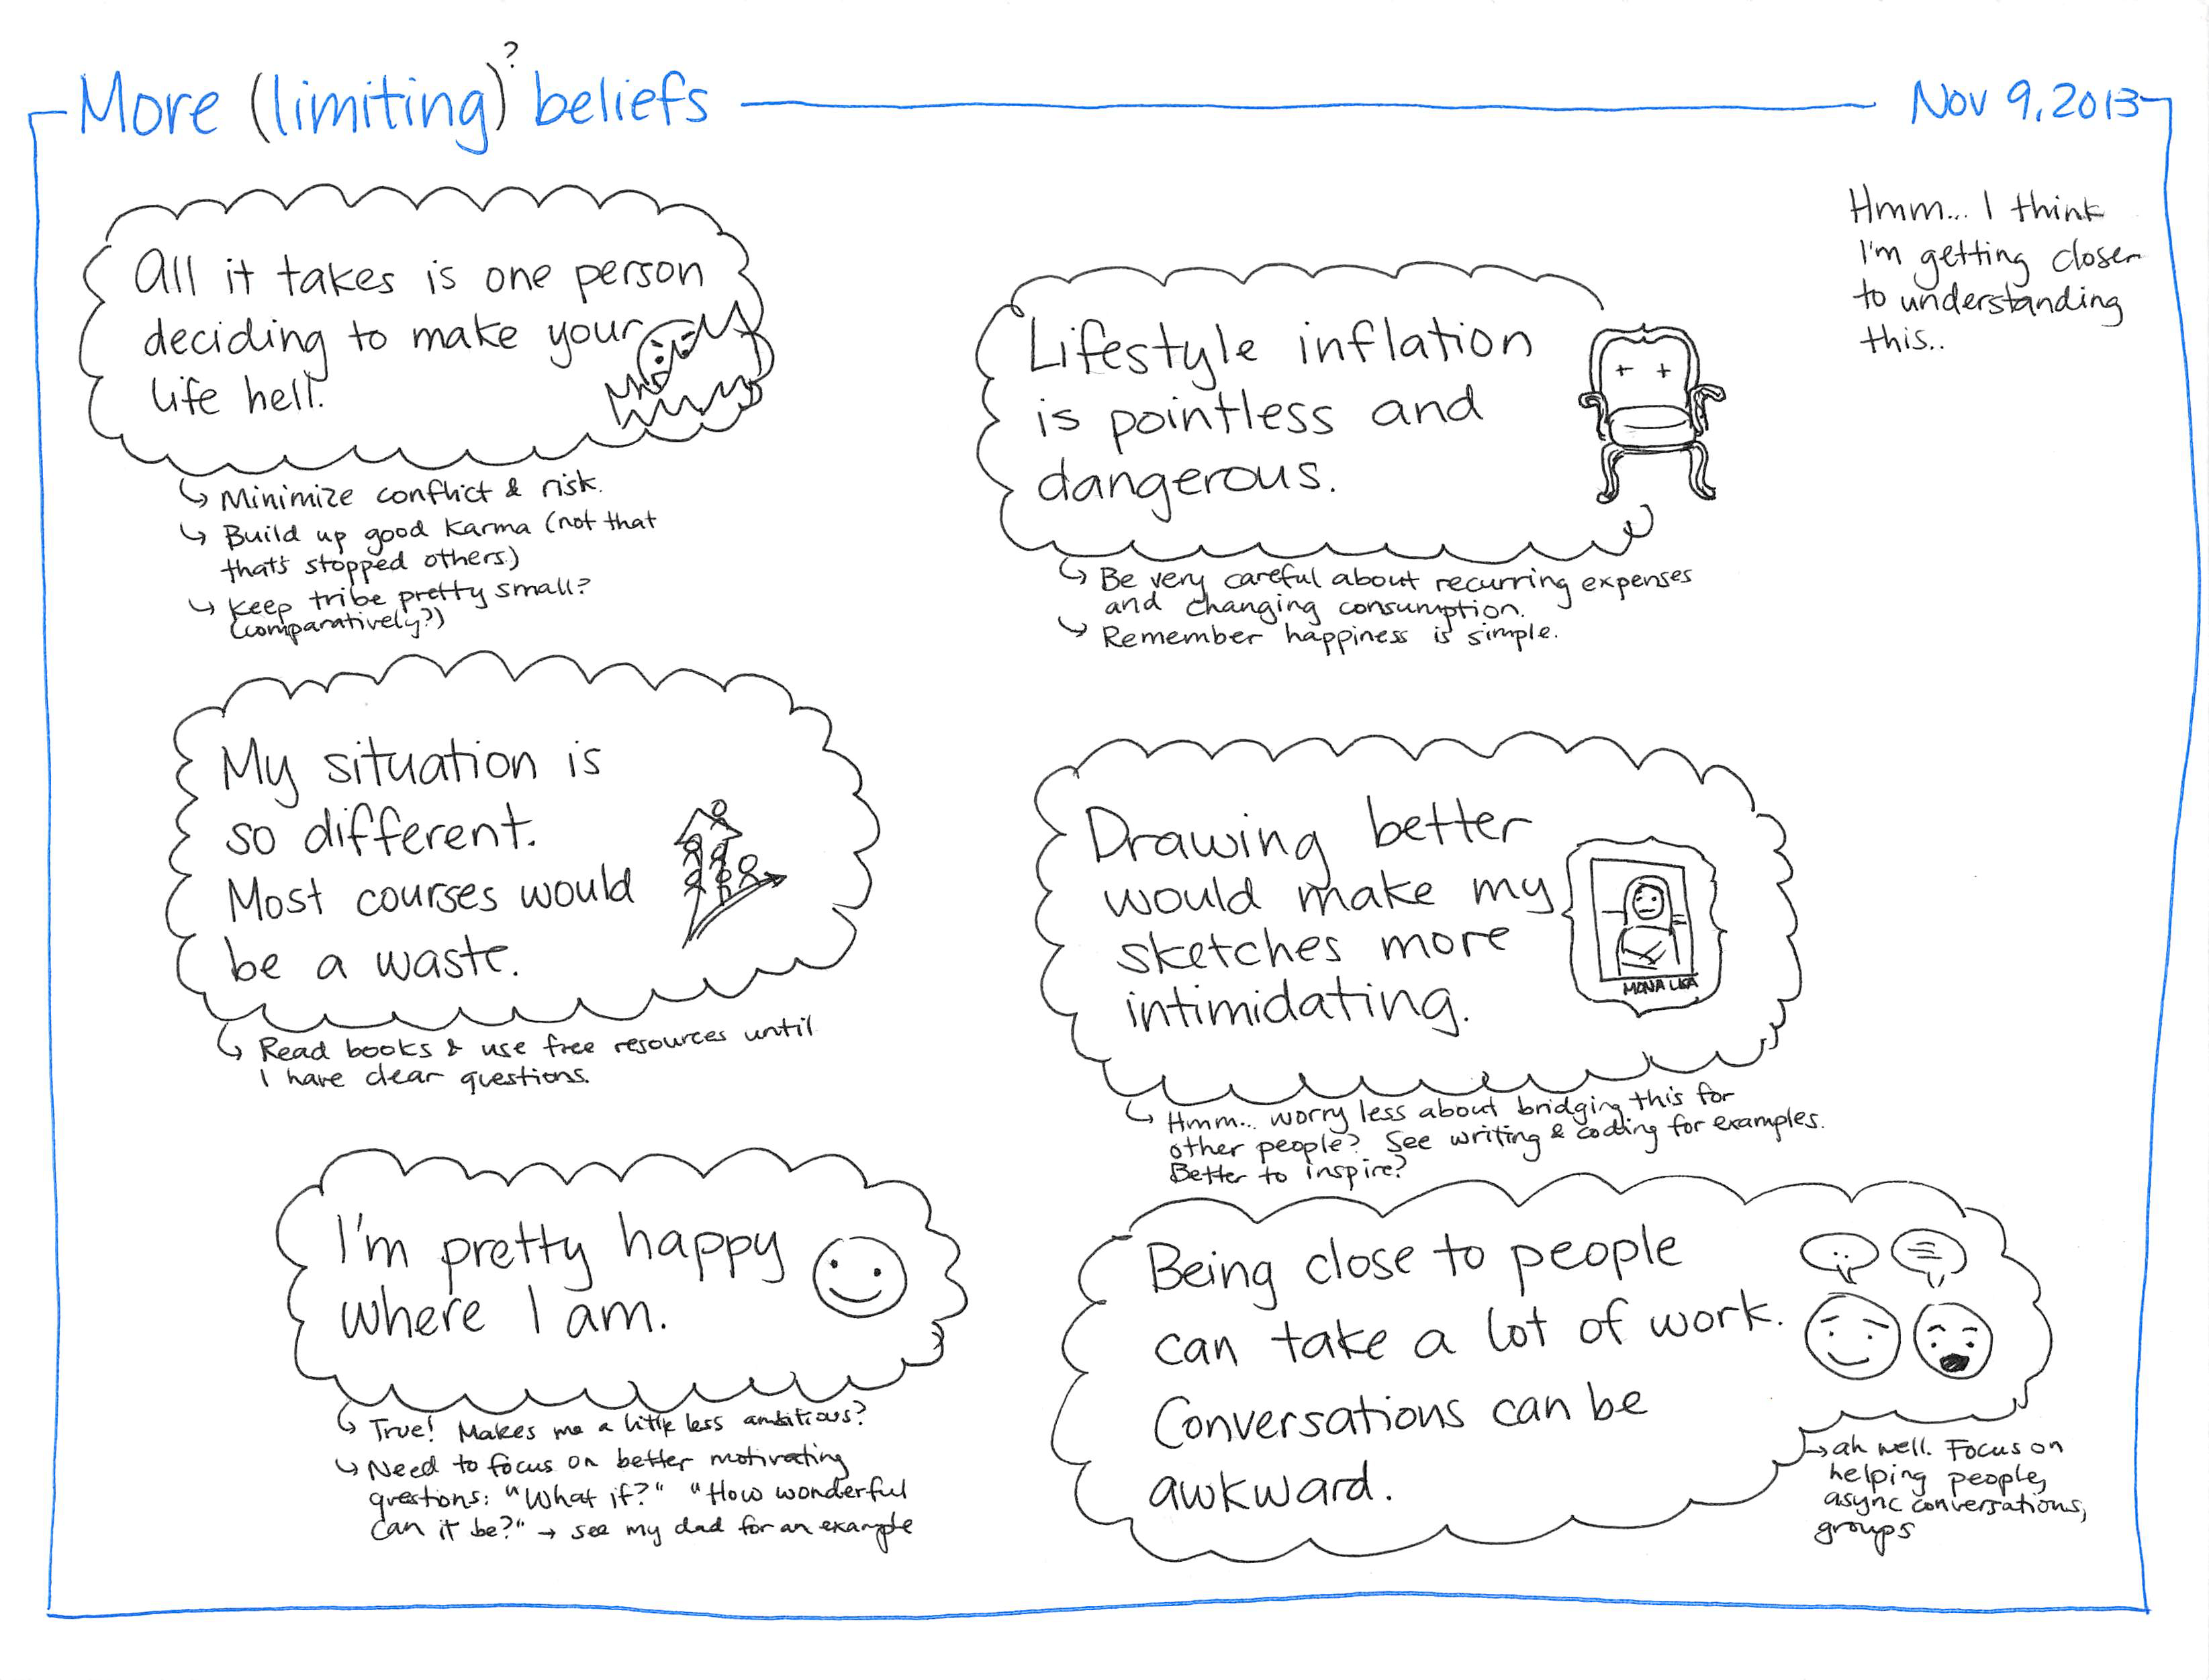 More (limiting)? beliefs
Nov 9, 2013
Hmm... I think
I'm getting closer
to understanding
this..
All it takes is one person
deciding to make your
life hell.
↳ Minimize conflict & risk.
↳ Build up good karma (not that
that's stopped others.)
↳ Keep tribe pretty small?
(comparatively?)
Lifestyle inflation
is pointless and
dangerous.
↳ Be very careful about recurring expenses
and changing consumption.
↳ Remember happiness is simple.
My situation is
so different.
Most courses would
be a waste.
↳ Read books & use free resources until
I have clear questions.
Drawing better
would make my
sketches more
intimidating.
MONA LISA
↳ Hmm... worry less about bridging this for
other people? See writing & coding for examples.
Better to inspire?
I'm pretty happy
where I am.
↳ True! Makes me a little less ambitious?
↳ Need to focus on better motivating
questions: "What if?" "How wonderful
can it be?" → see my dad for an example
Being close to people
can take a lot of work.
Conversations can be
awkward.
↳ ah well. Focus on
helping people,
async conversations,
groups